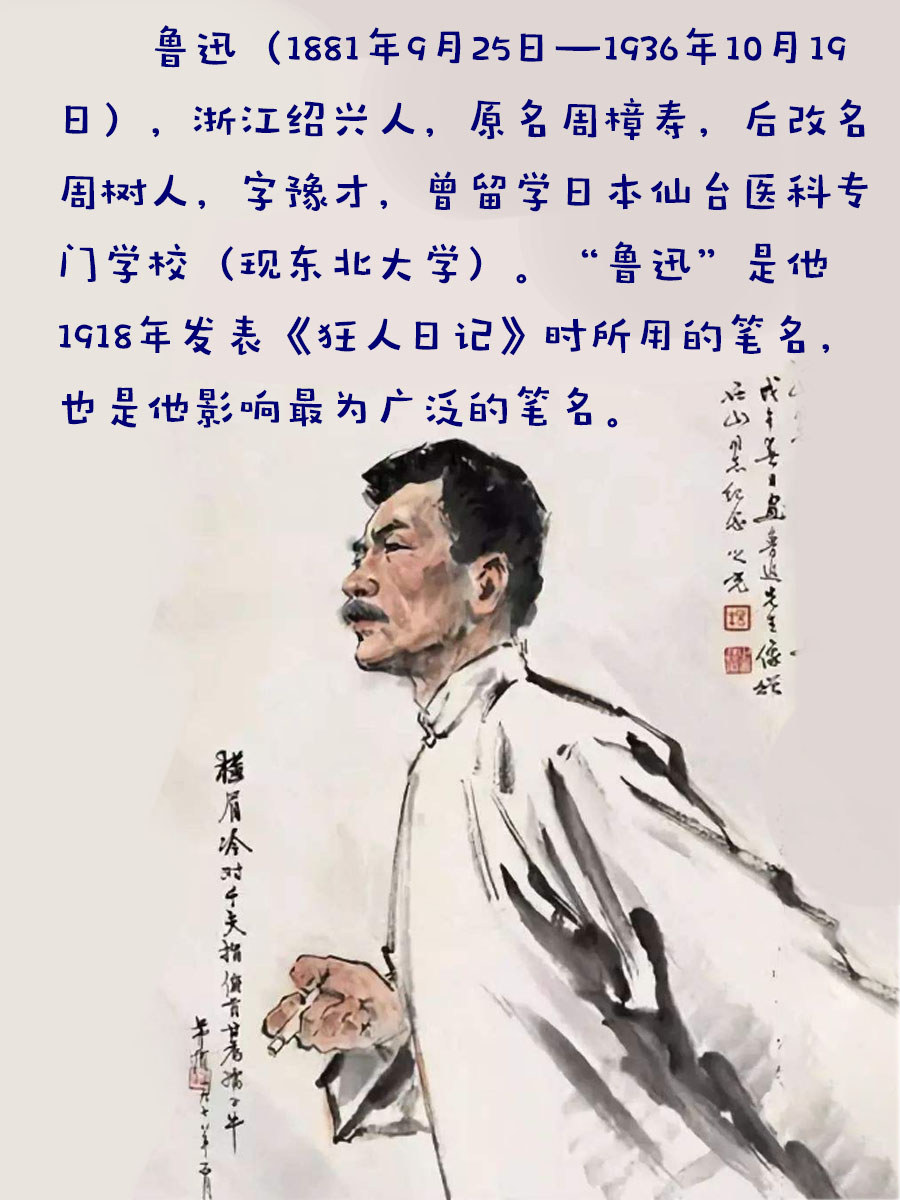 鲁迅（1881年9月25日—1936年10月19
日），浙江绍兴人，原名周樟寿，后改名
周树人，字豫才，曾留学日本仙台医科专
门学校（现东北大学）。“鲁迅”是他
1918年发表《狂人日记》时所用的笔名，
也是他影响最为广泛的笔名。
戊午春日画鲁迅先生像
纪念
横眉冷对千夫指俯首甘为孺子牛